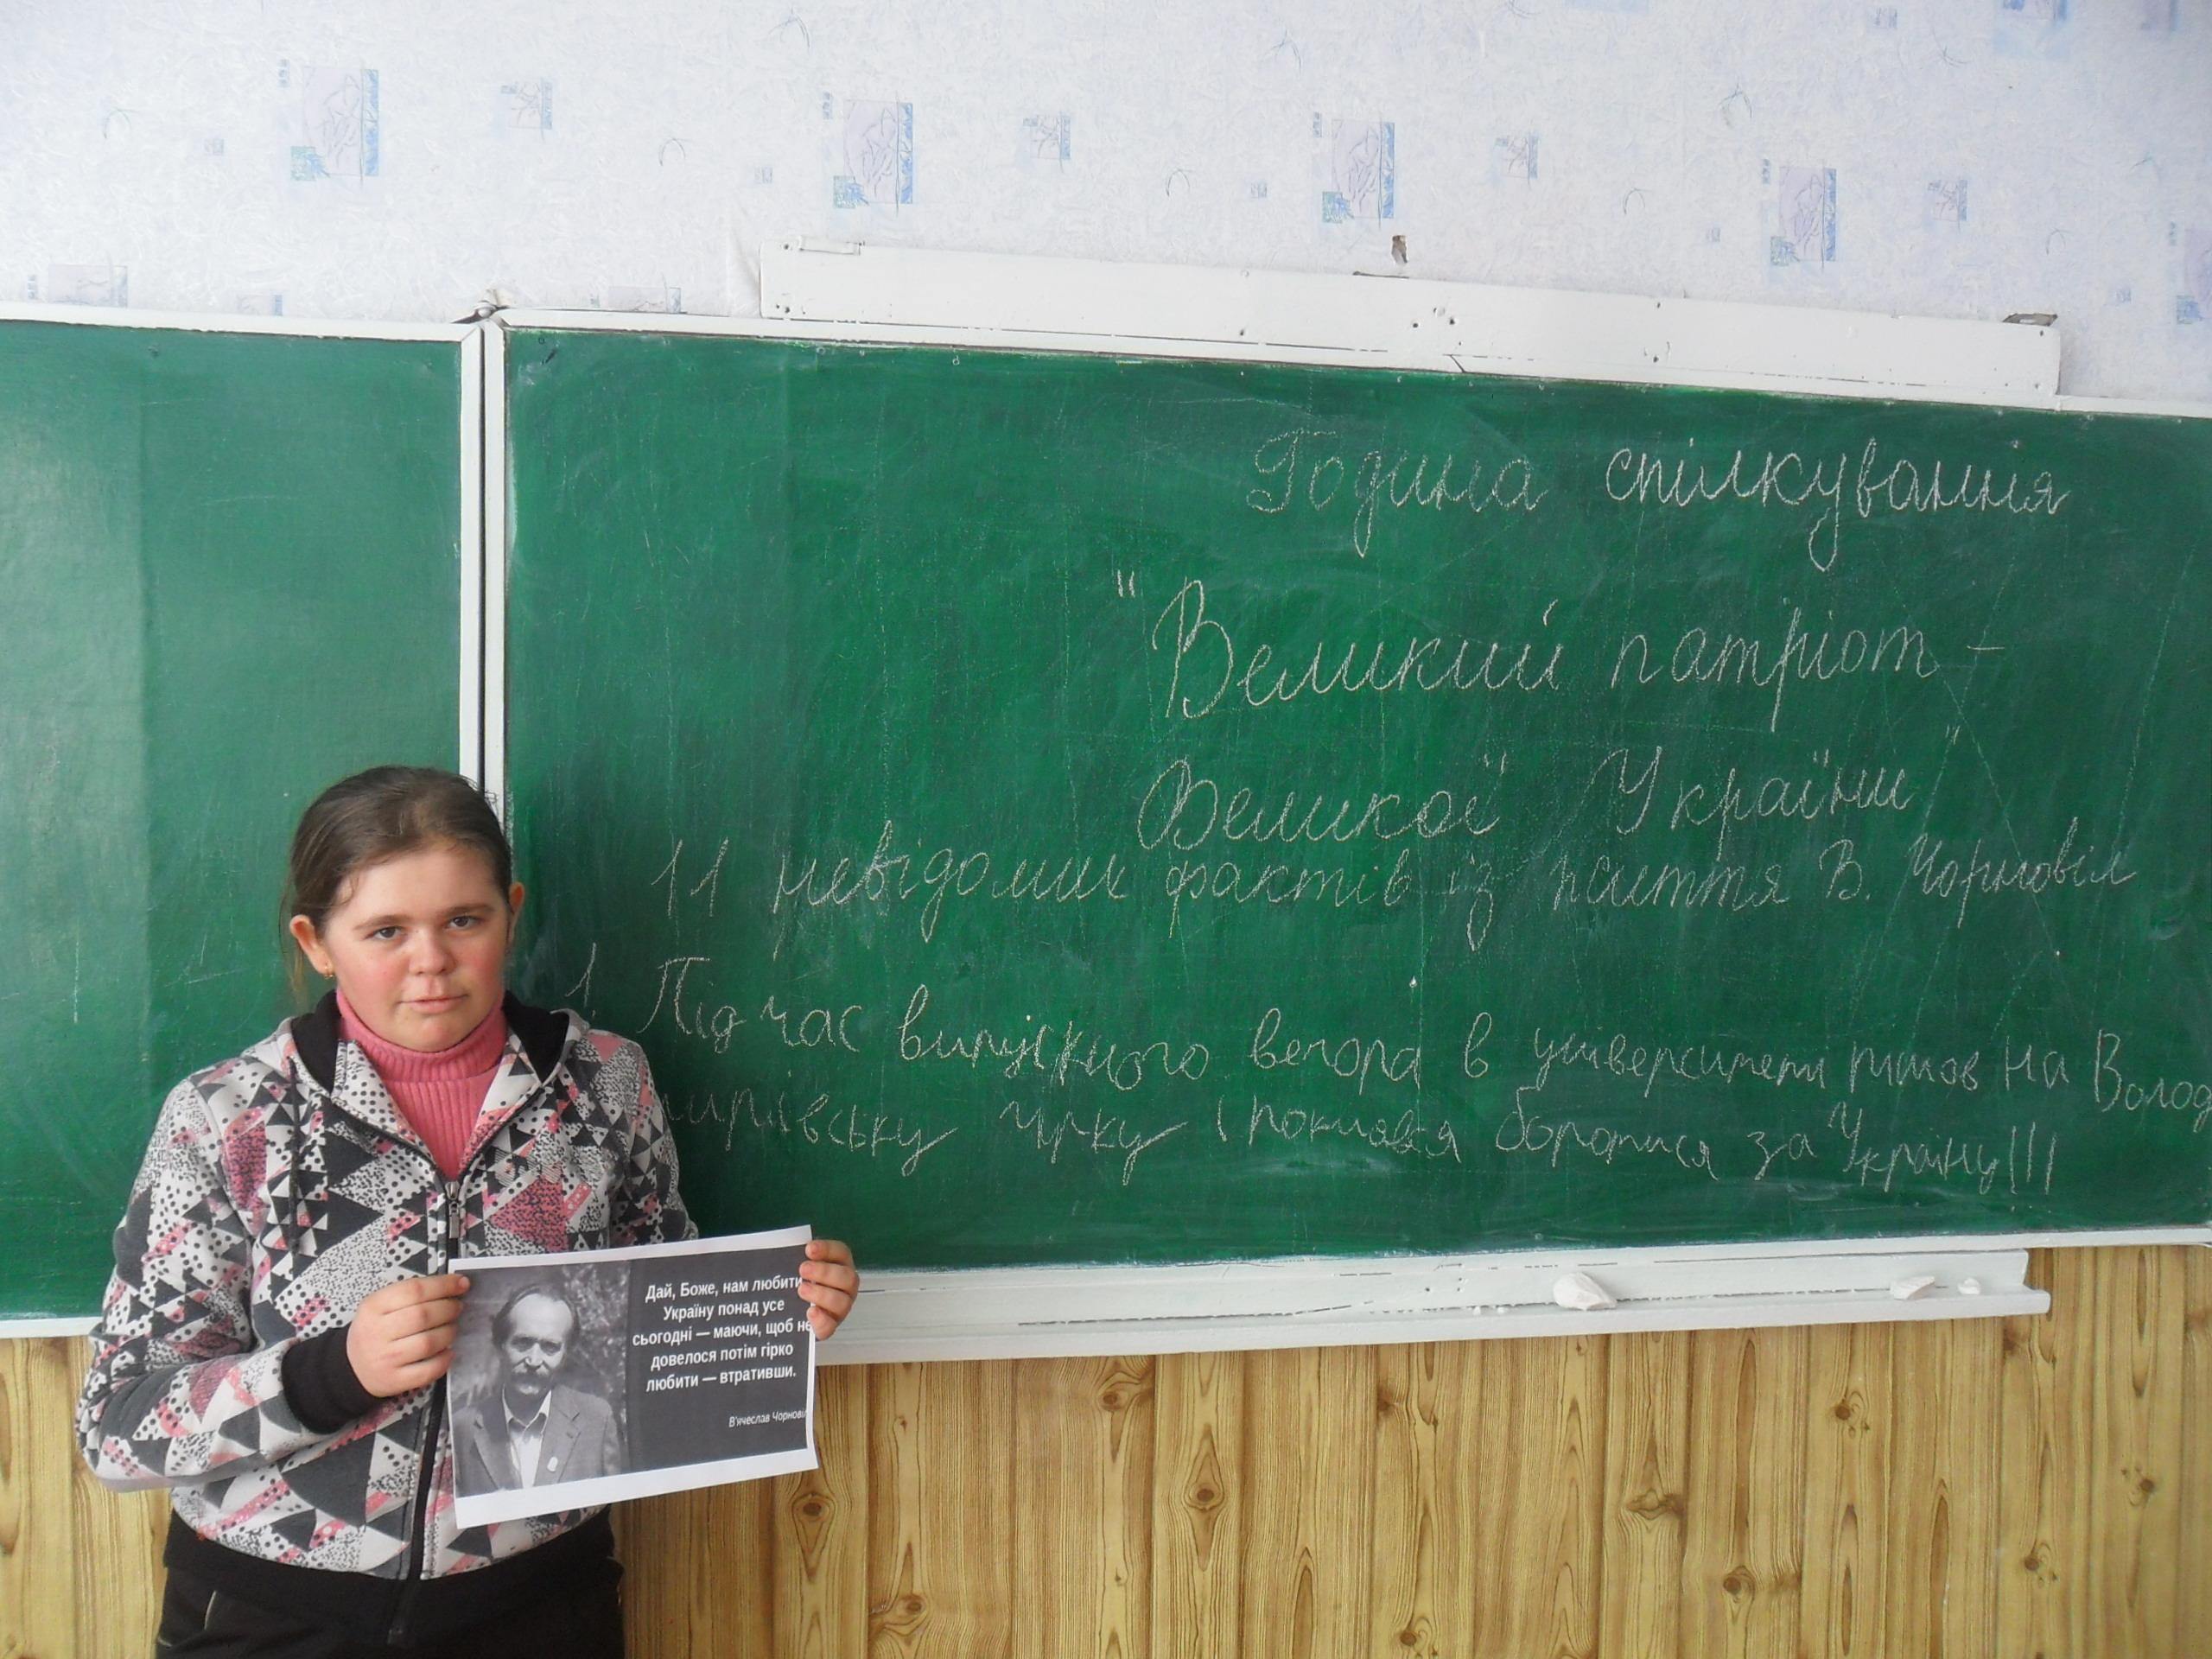 Година спілкування
"Великий патріот -
Великої України"
11 невідомих фактів із життя В. Чорновіл
1. Під час випускного вечора в університеті пішов на Волод
имирівську гірку і поклявся боротися за Україну!!!
Дай, Боже, нам любити
Україну понад усе
сьогодні — маючи, щоб не
довелося потім гірко
любити — втративши.
В'ячеслав Чорновіл